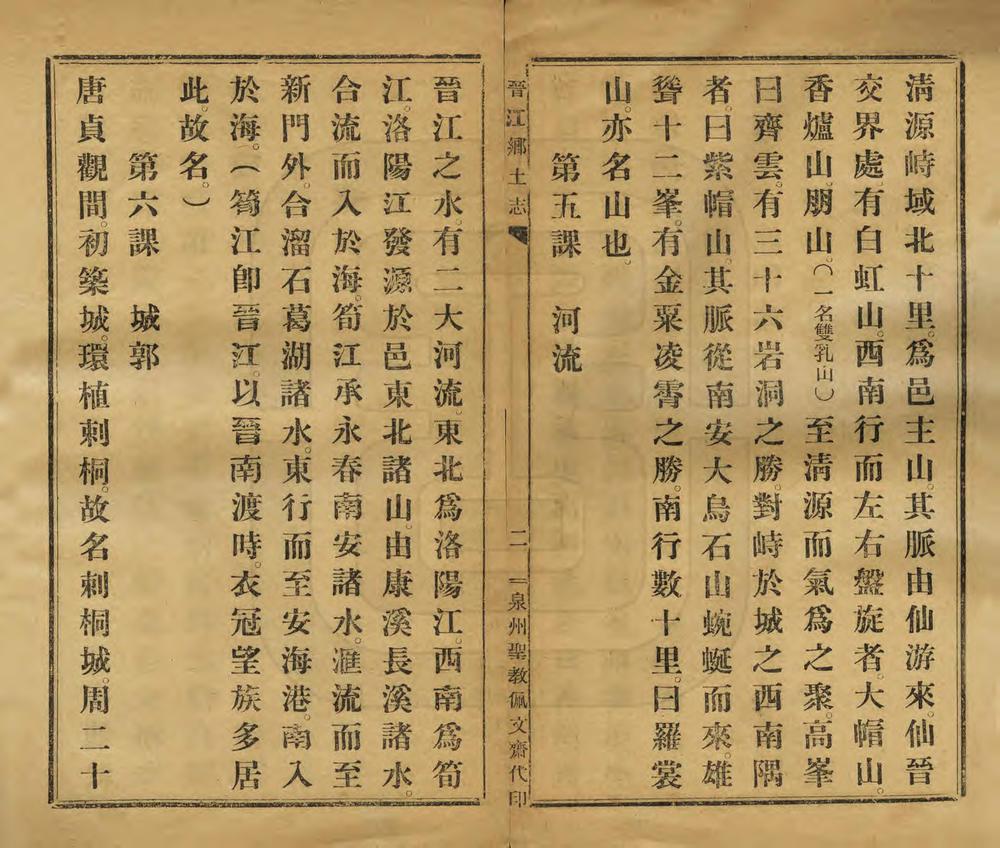 清源峙域北十里。爲邑主山。其脈由仙游來。仙晉
交界處。有白虹山。西南行而左右盤旋者。大帽山。
香爐山。朋山。(一名雙乳山)至清源而氣爲之聚。高峯
曰齊雲。有三十六岩洞之勝。對峙於城之西南隅
者。曰紫帽山。其脈從南安大烏石山蜿蜒而來。雄
聳十二峯。有金粟凌霄之勝。南行數十里。曰羅裳
山。亦名山也。
第五課 河流
晉江鄉土志 二 泉州聖教佩文齋代印
晉江之水。有二大河流。東北爲洛陽江。西南爲筍
江。洛陽江發源於邑東北諸山。由康溪長溪諸水。
合流而入於海。筍江承永春南安諸水。滙流而至
新門外。合溜石葛湖諸水。東行而至安海港。南入
於海。(筍江卽晉江。以晉南渡時。衣冠望族多居
此。故名。)
第六課 城郭
唐貞觀間。初築城。環植刺桐。故名刺桐城。周二十